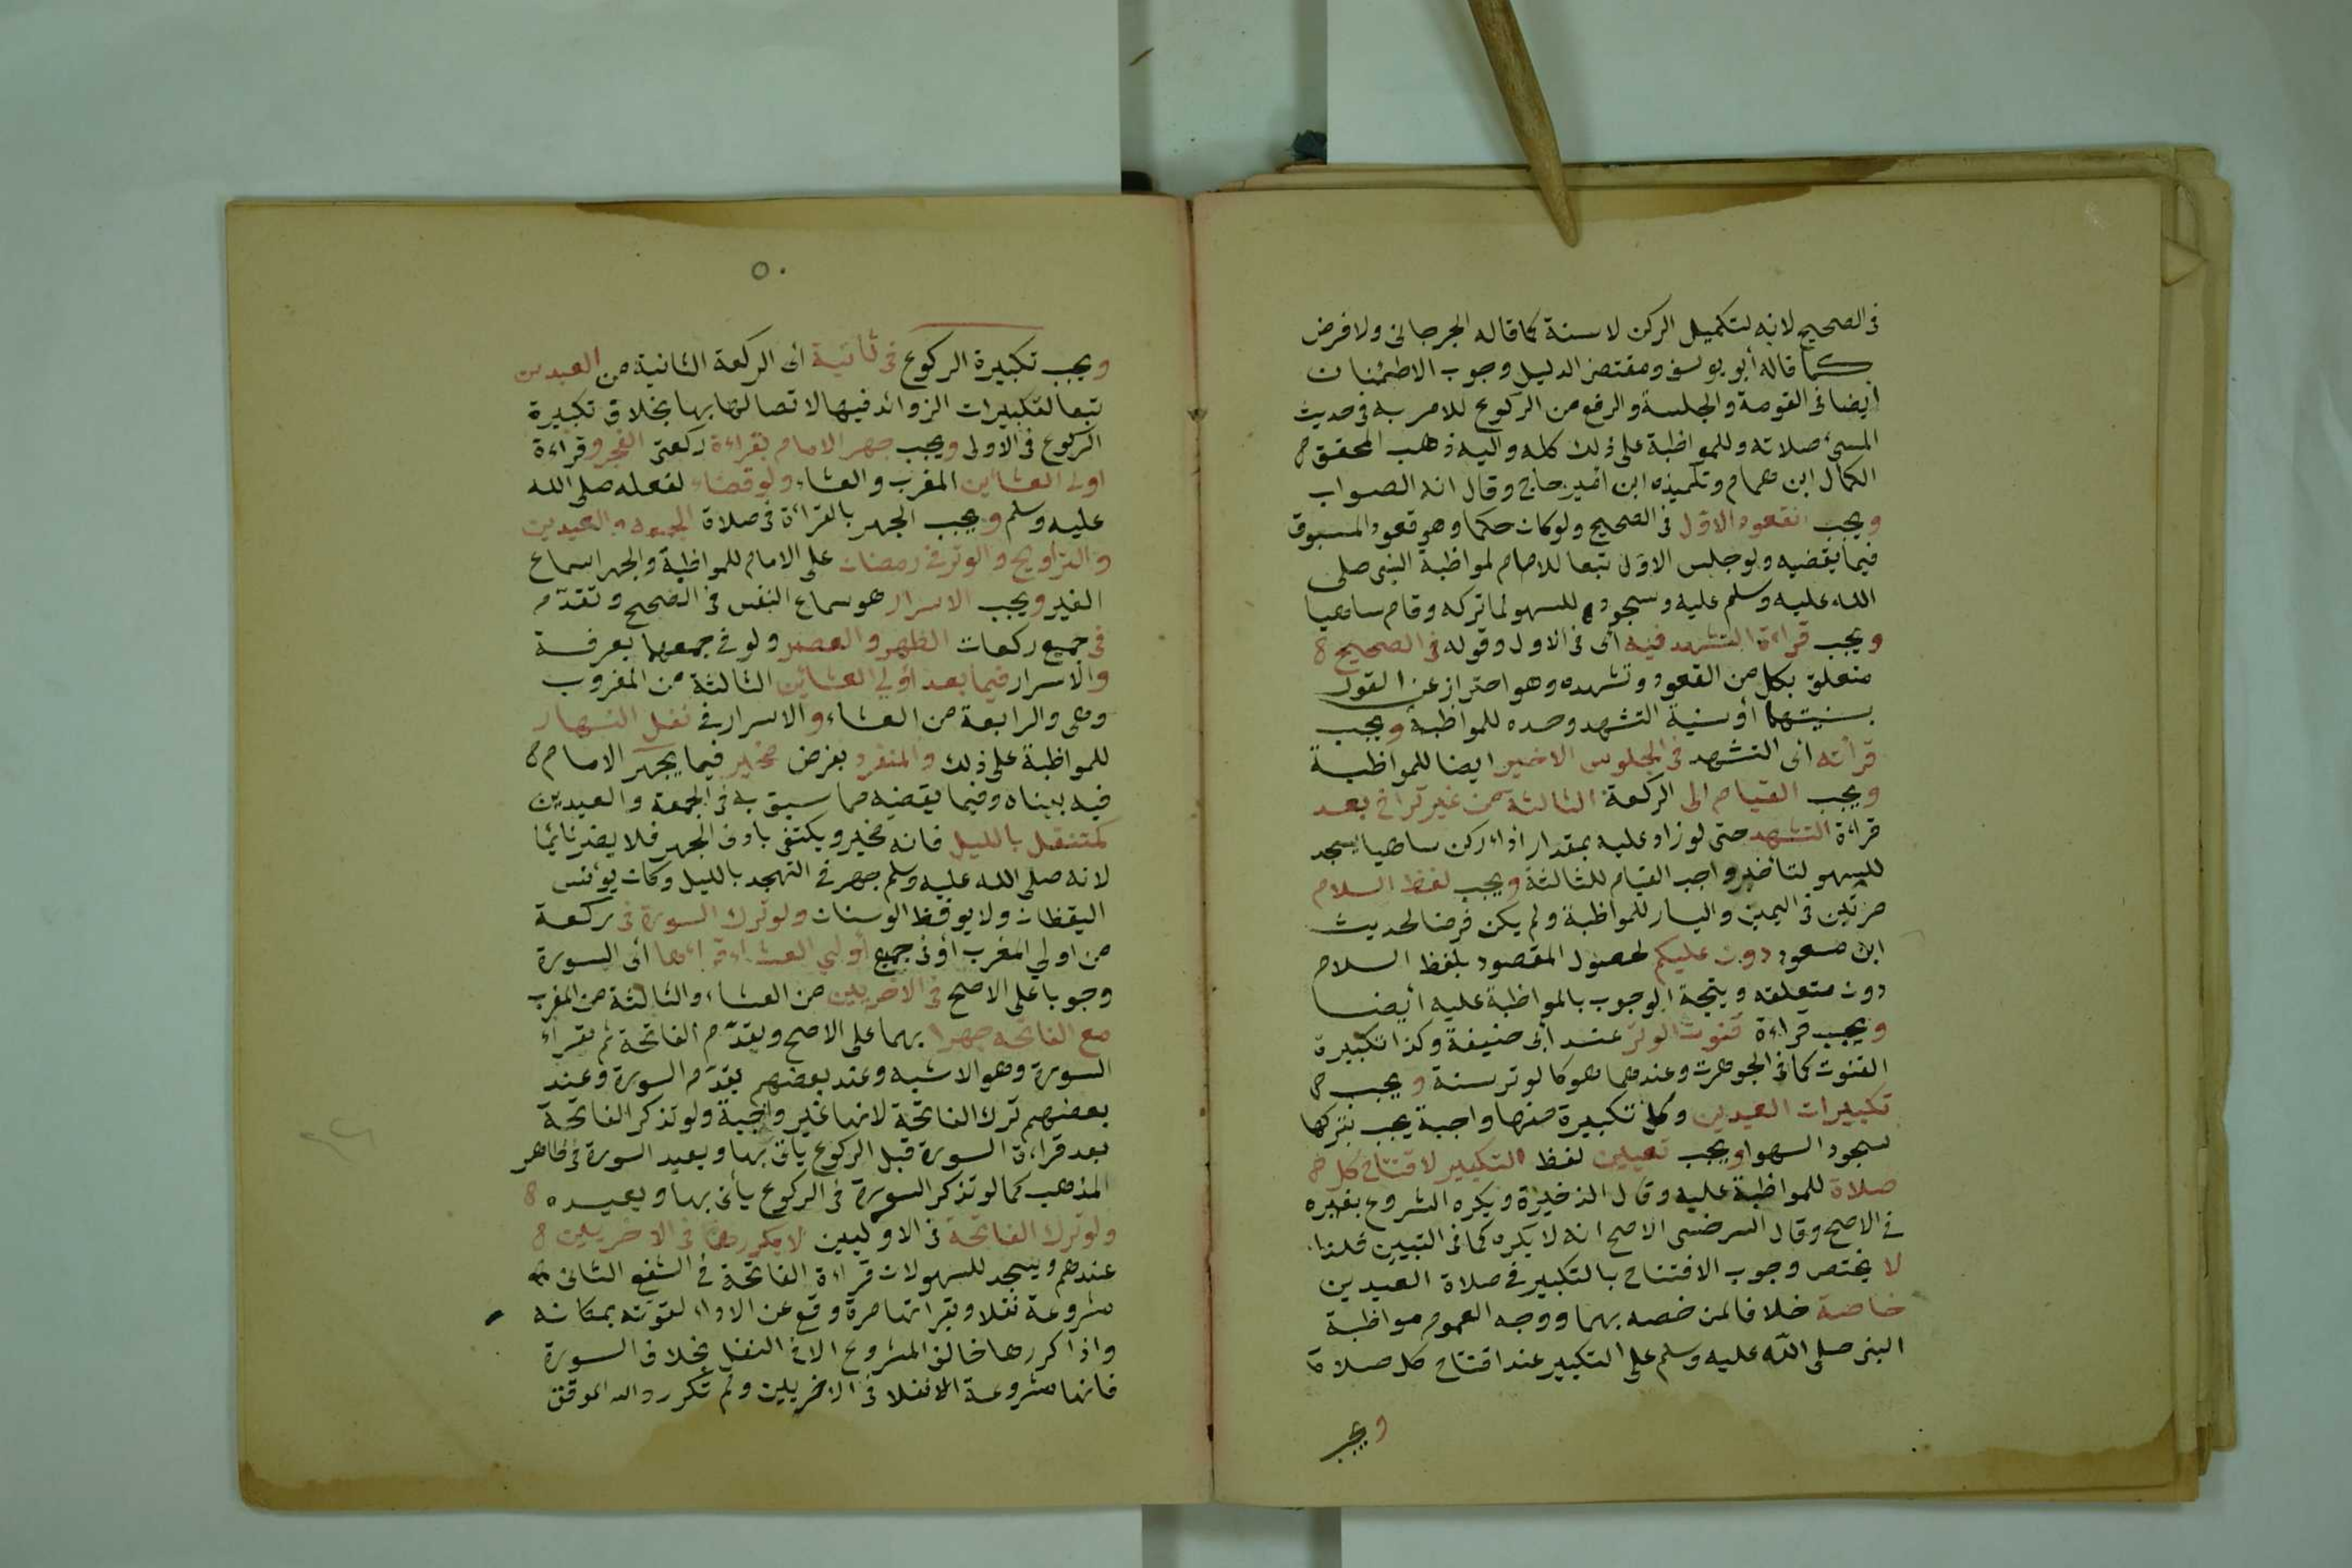 فى الصحيح لانه لتكميل الركن لا سنة كما قاله الجرجانى ولا فرض
كما قاله أبو يوسف ومقتضى الدليل وجوب الاطمئنان
ايضا فى القومة والجلسة والرفع من الركوع للامر به فى حديث
المسئ صلاته وللمواظبة على ذلك كله واليه ذهب المحقق
الكمال ابن همام وتلميذه ابن امير حاج وقال انه الصواب
ويجب القعود الاول فى الصحيح ولو كان حكما وهو قعود المسبوق
فيما يقضيه ولو جلس الاول تبعا للامام لمواظبة النبى صلى
الله عليه وسلم عليه وسجوده للسهو لما تركه وقام ساهيا
ويجب قراءة التشهد فيه أى فى الاول وقوله فى الصحيح
متعلق بكل من القعود وتشهده وهو احتراز عن القول
بسنيتهما أو سنية التشهد وحده للمواظبة ويجب
قرأته اى التشهد فى الجلوس الاخير ايضا للمواظبة
ويجب القيام الى الركعة الثالثة من غير تراخ بعد
قراءة التشهد حتى لو زاد عليه بمقدار اداء ركن ساهيا يسجد
للسهو لتأخير واجب القيام للثالثة ويجب لفظ السلام
مرتين فى اليمين واليسار للمواظبة ولم يكن فرضا لحديث
ابن مسعود دون عليكم لحصول المقصود بلفظ السلام
دون متعلقه ويتجة الوجوب بالمواظبة عليه أيضا
ويجب قراءة قنوت الوتر عند أبى حنيفة وكذا تكبيرة
القنوت كما فى الجوهرت وعندهما هو كالوتر سنة ويجب
تكبيرات العيدين وكل تكبيرة منها واجبة يجب بتركها
سجود السهو ويجب تعيين لفظ التكبير لافتتاح كل
صلاة للمواظبة عليه وقال الذخيرة ويكره الشروع بغيره
فى الاصح وقال السرخسى الاصح انه لا يكره كما فى التبيين فلذا
لا يختص وجوب الافتتاح بالتكبير فى صلاة العيدين
خاصة خلافا لمن خصه بهما ووجه العموم مواظبة
النبى صلى الله عليه وسلم على التكبير عند افتتاح كل صلاة
ويجب
٥٠
ويجب تكبيرة الركوع فى ثانية اى الركعة الثانية من العيدين
تبعا لتكبيرات الزوائد فيها لاتصالها بها بخلاف تكبيرة
الركوع فى الاولى ويجب جهر الامام بقراءة ركعتى الفجر وقراءة
اولى العشاين المغرب والعشاء ولو قضاء لفعله صلى الله
عليه وسلم ويجب الجهر بالقرأة فى صلاة الجمعة والعيدين
والتراويح والوتر فى رمضان على الامام للمواظبة والجهر اسماع
الغير ويجب الاسرار هو سماع النفس فى الصحيح وتقدم
فى جميع ركعات الظهر والعصر ولو فى جمعهما بعرفة
والاسرار فيما بعد أولى العشائين الثالثة من المغروب
وهى والرابعة من العشاء والاسرار فى نفل النهار
للمواظبة على ذلك والمنفرد بفرض مخير فيما يجهر الامام
فيه بيناه وفيما يقضيه مما سبق به فى الجمعة والعيدين
كمتنفل بالليل فانه مخير ويكتفى بادنى الجهر فلا يضر نائما
لانه صلى الله عليه وسلم جهر فى التهجد بالليل وكان يؤنس
اليقظان ولا يوقظ الوسنان ولو ترك السورة فى ركعة
من اولي المغرب او فى جميع أولي العشاء قرأها أى السورة
وجوبا على الاصح فى الاخريين من العشاء والثالثة من المغرب
مع الفاتحة جهرا بهما على الاصح ويقدم الفاتحة ثم يقرأ
السورة وهو الاشبه وعند بعضهم يقدم السورة وعند
بعضهم ترك الفاتحة لانها غير واجبة ولو تذكر الفاتحة
بعد قراءة السورة قبل الركوع يأتى بها ويعيد السورة فى ظاهر
المذهب كما لو تذكر السورة فى الركوع يأتى بها ويعيده
ولو ترك الفاتحة فى الاوليين لا يكررها فى الاخريين
عندهم ويسجد للسهو لان قراءة الفاتحة فى الشفع الثانى
مشروعة نفلا وبقرأتها مرة وقع عن الاداء لقوته بمكانه
واذا كررها خالف المشروع الا فى النفل بخلاف السورة
فانها مشروعة نفلا فى الاخريين ولم تكرر والله الموفق